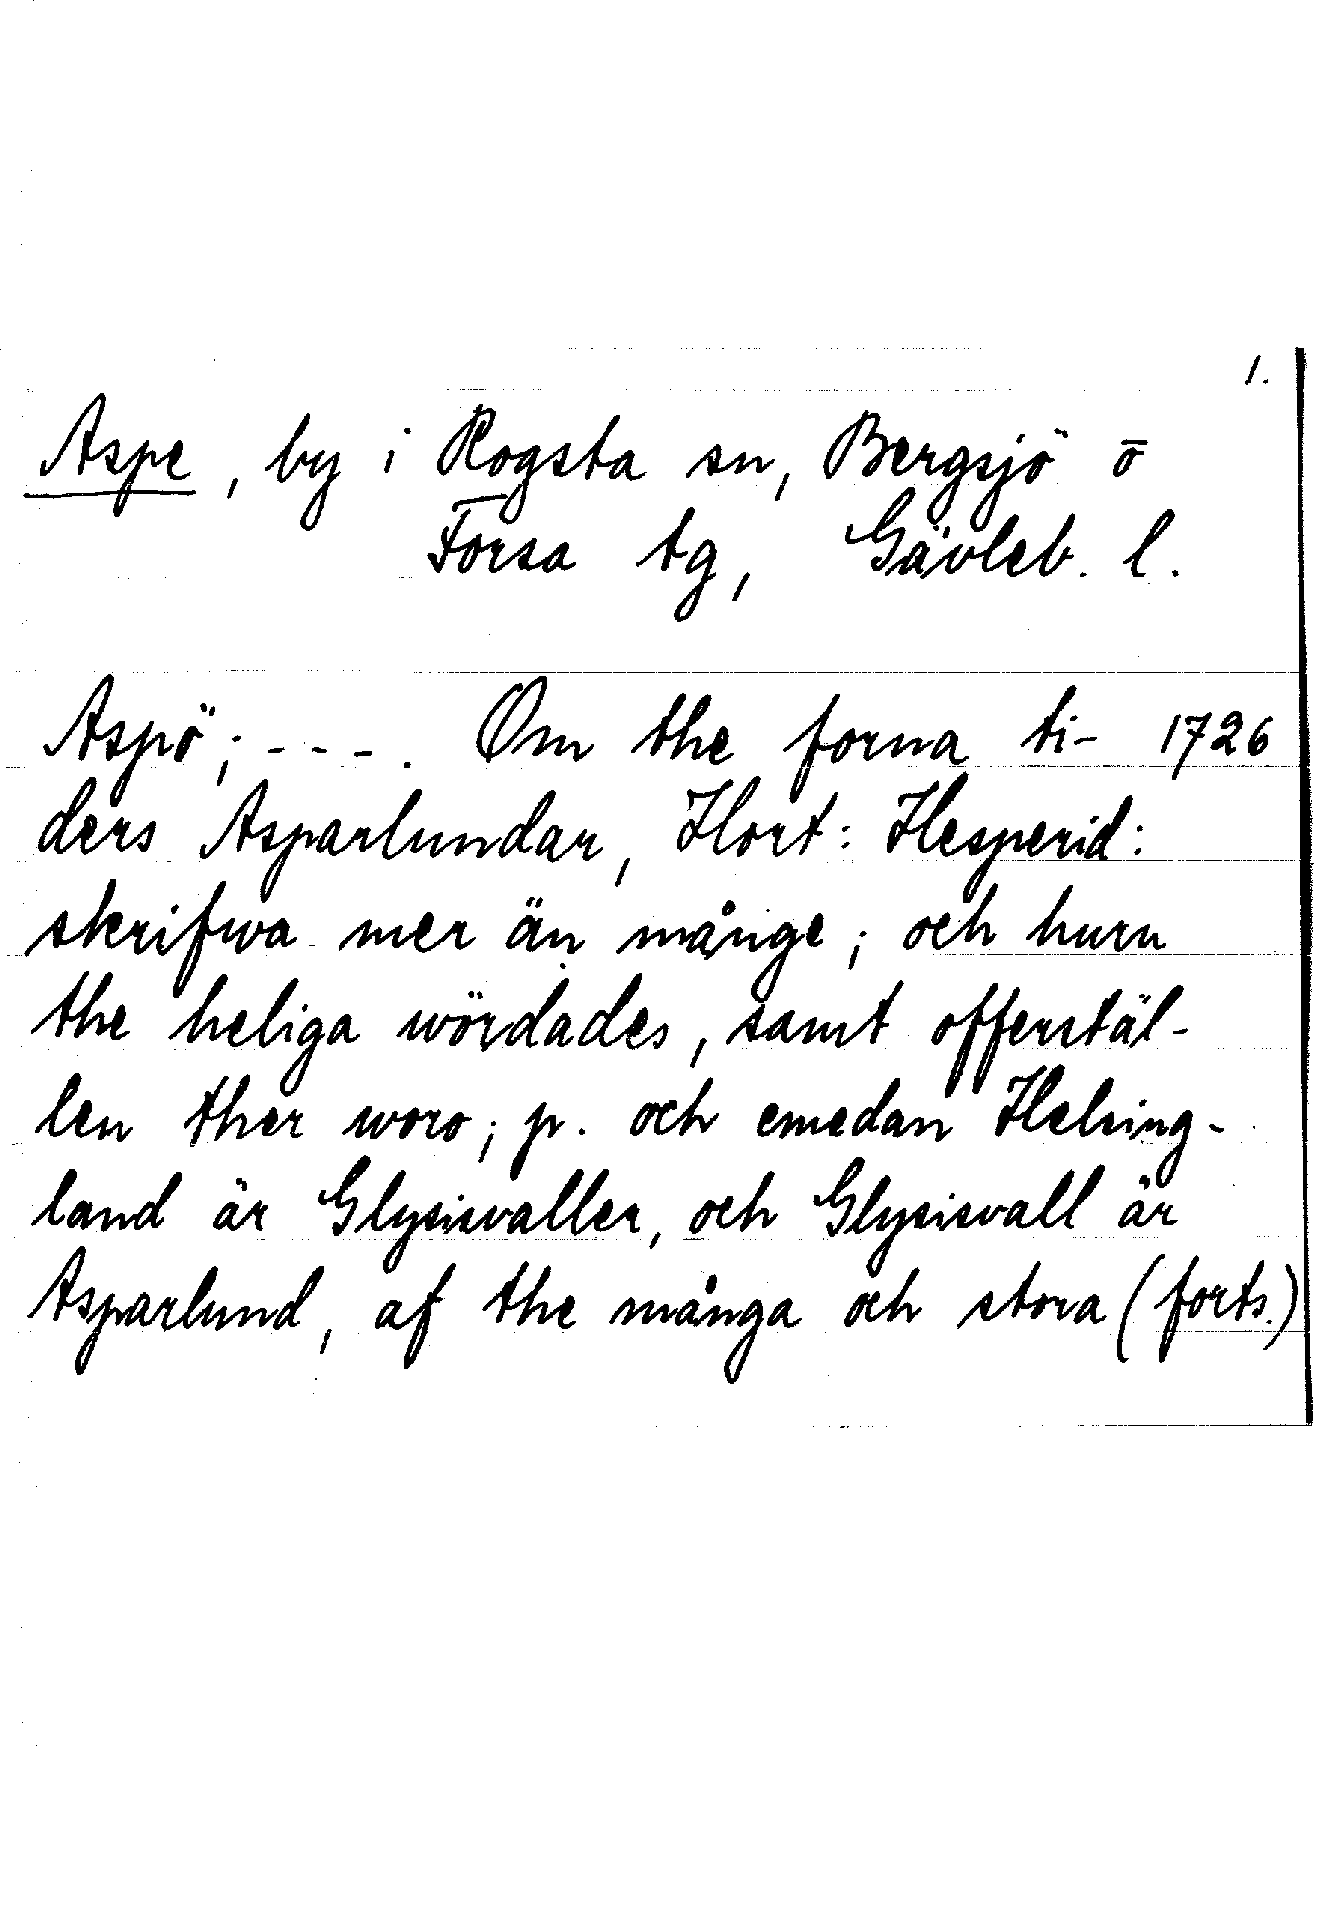 1.
Aspe, by i Rogsta sn, Bergsjö o
Forsa tg, Gävleb. l.
Aspö; - - - . Om the forna ti- 1726
ders Asparlundar, Hort: Hesperid:
skrifwa mer än månge; och huru
the heliga wördades, samt offerstäl-
len ther woro; p. och emedan Helsing-
land är Glysisvaller, och Glysisvall är
Asparlund, af the många och stora (forts.)